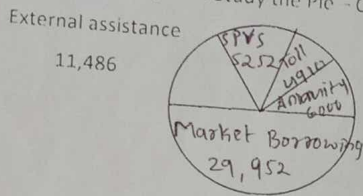 Study the Pie - C
External assistance
11,486
SPVS
5252
Toll
Annuity
6000
Market Borrowing
29,952